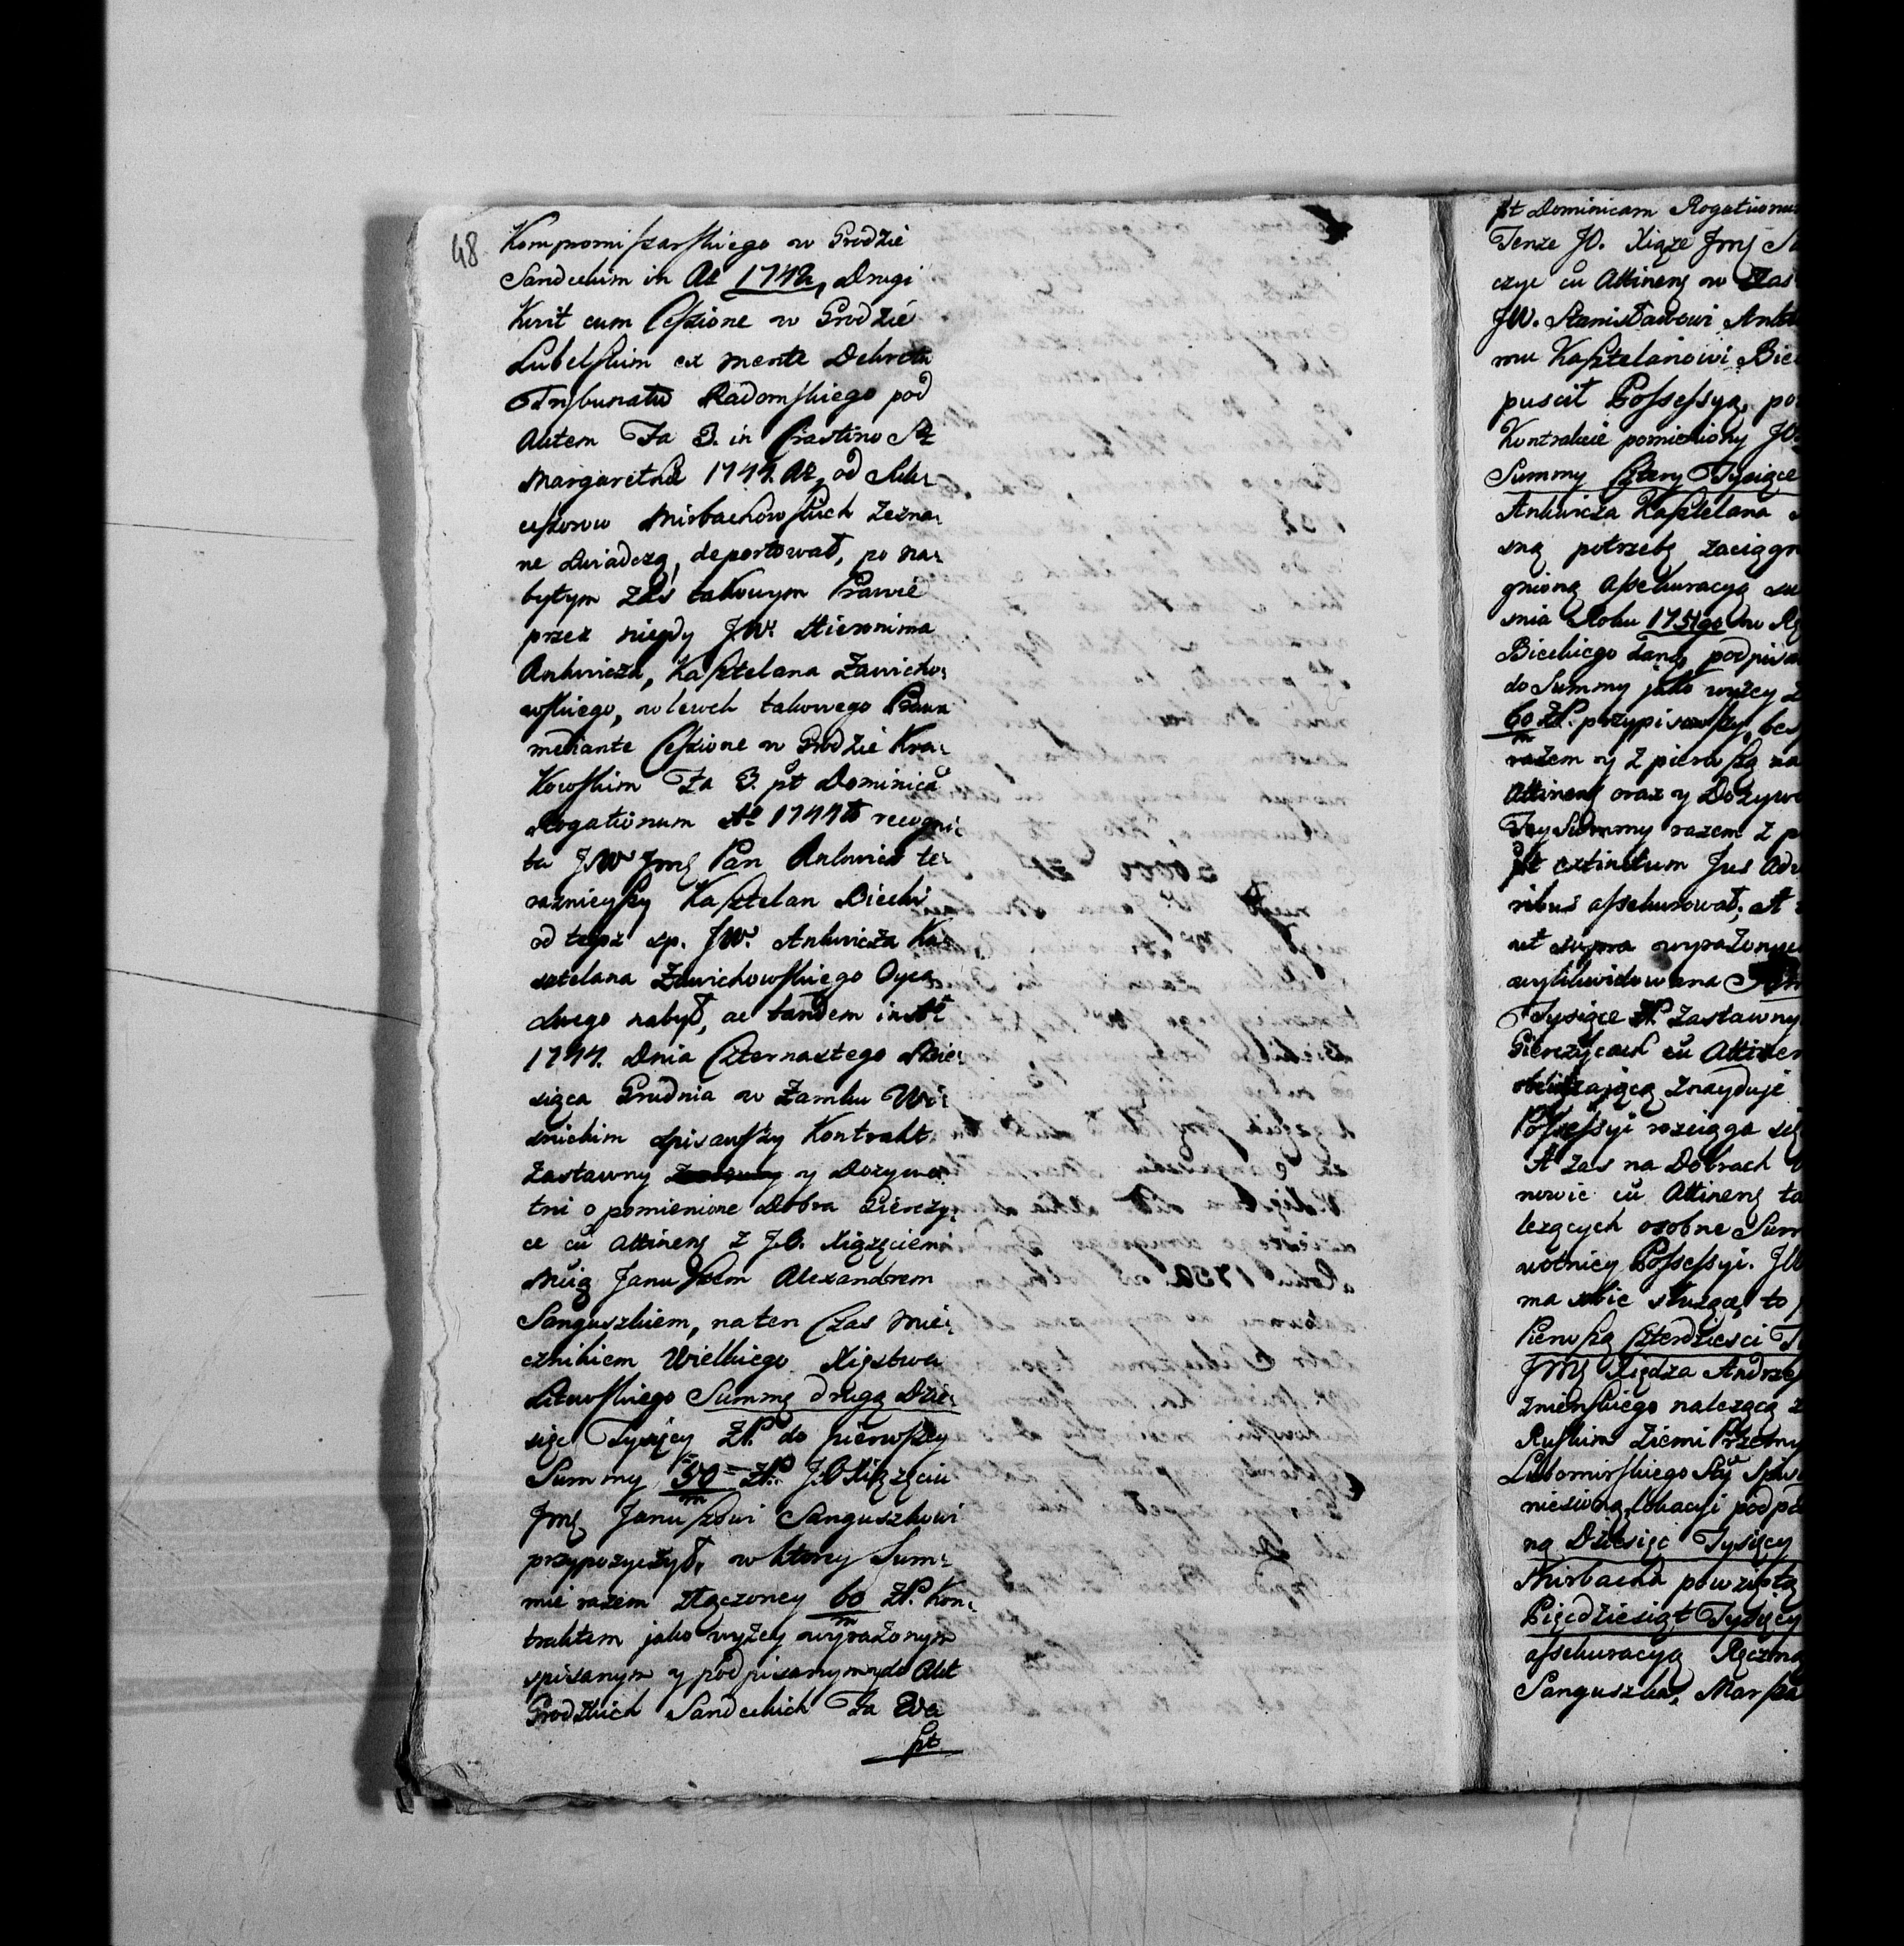 48.
Kompromiszarskiego w Grodzie
Sandeckim in Ao 1742, Drugi
Kwit cum Cessione w Grodzie
Lubelskim ex mente Dekretu
Trybunału Radomskiego pod
Aktem Fa 3. in Crastino S
Margarethæ 1744. Ao, od Suk:
cessorow Mirbachowskich zezna:
ne swiadczą, deportował, po na:
bytym zaś takowym Prawie
przez niegdy JW. Hieronima
Ankwicza, Kasztelana Zawicho:
wskiego, wlewek takowego Prawa
mediante Cessione w Grodzie Kra:
kowskim Fa 3. pt Dominicã
Rogationum Ao 1744to recogni:
ta JW Jmę Pan Ankwicz te:
raznieyszy Kasztelan Biecki
od tegoż sp. JW. Ankwicza Ka:
sztelana Zawichowskiego Oyca
swego nabył, ac tandem in Ao
1744. Dnia Czternastego Mie:
siąca Grudnia w Zamku Wi:
snickim spisawszy Kontrakt
Zastawny y Dozywo:
tni o pomienione Dobra Gierczy:
ce cũ attinen z J.O. Xiązęciem
Januszem Alexandrem
Sanguszkiem, na ten Czas Mie:
cznikiem Wielkiego Xięstwa
Litewskiego Summę drugą Dzie:
sięc Tysięcy ZłP. do pierwszey
Summy 50 m ZłP. J.O Xiązęciu
Jmę Januszowi Sanguszkowi
przypozyczył, w ktorey Sum:
mie razem złączoney 60 m ZłP. Kon:
traktem jako wyżey wyrażonym
spisanym y podpisanym y do Akt
Grodzkich Sandeckich Fa 2da
pt
pt Dominicam Rogationum
Tenze JO. Xiąze Jmę
czyc cũ Attinen w Zas
JW. Stanisławowi Ankw
mu Kasztelanowi Biec
puscił Possessyą, po
Kontrakcie pomieniony JO.
Summy Cztery Tysiące
Ankwicza Kasztelana
sną potrzebę zaciągn
gnioną assekuracyą
snia Roku 1751go w
Bieckiego daną, podpisa
do Summy jako wyżey
60 m ZłP. przypisawszy, bes
razem y z pierwszą za
Attinen oraz y Dożywo
Tey Summy razem z p
pt extinctum Jus Adv
ribus assekurował. A
ut supra wyrażone
wylikwidowana
Tysiące ZłP. Zastawny
Gierczycach cũ Attinen
znayduje
Possessyi rozciąga się
A zas na Dobrach
nowie cũ Attinen
leżących osobne Sum
wotnicy Possessyi. JW
ma sobie służące, to
Pierwszą Czterdziesci T
Jmę Xiędza Andrze
należącą
Ruskim Ziemi Przemy
Lubomirskiego
niesioną, lokacyi podpa
ną Dziesięc Tysięcy
Mirbacha powziętą
Pięcdziesiąt Tysięcy
assekuracyą Ręczną
Sanguszka, Marsza